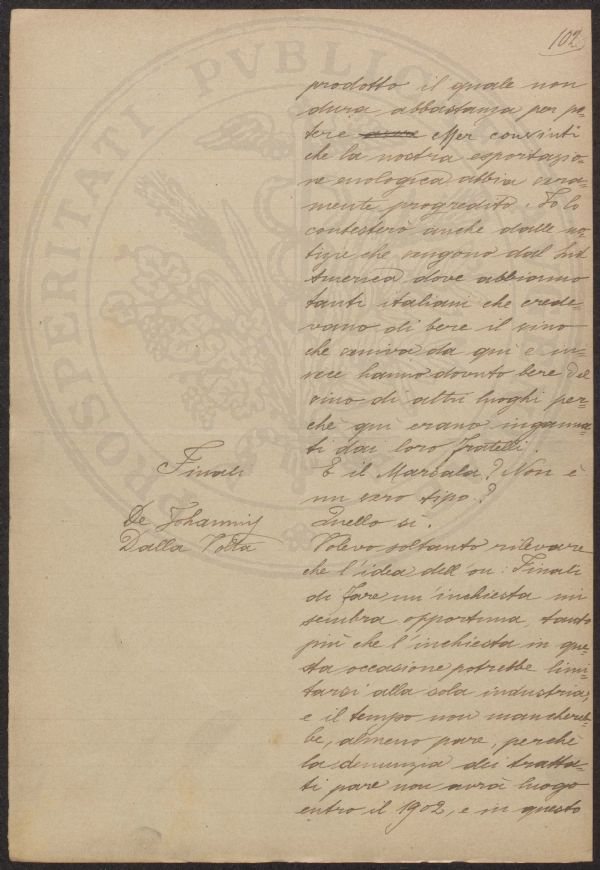 102
prodotto il quale non
dura abbastanza per po-
tere esser convinti
che la nostra esportazio-
ne enologica abbia vera-
mente progredito. Io lo
contesterò anche dalle no-
tizie che vengono dal Sud
America dove abbiamo
tanti italiani che crede-
vano di bere il vino
che arriva da qui e in-
vece hanno dovuto bere del
vino di altri luoghi per-
chè qui erano inganna-
ti dai loro fratelli.
Finali E il Marsala? Non è
un vero tipo?
De Johannis Quello sì.
Dalla Volta Volevo soltanto rilevare
che l'idea dell'on: Finali
di fare un'inchiesta mi
sembra opportuna, tanto
più che l'inchiesta in que-
sta occasione potrebbe limi-
tarsi alla sola industria,
e il tempo non mancereb-
be, almeno pare, perchè
la denunzia dei tratta-
ti pare non avrà luogo
entro il 1902, e in questo
PROSPERITATI PVBLICAE